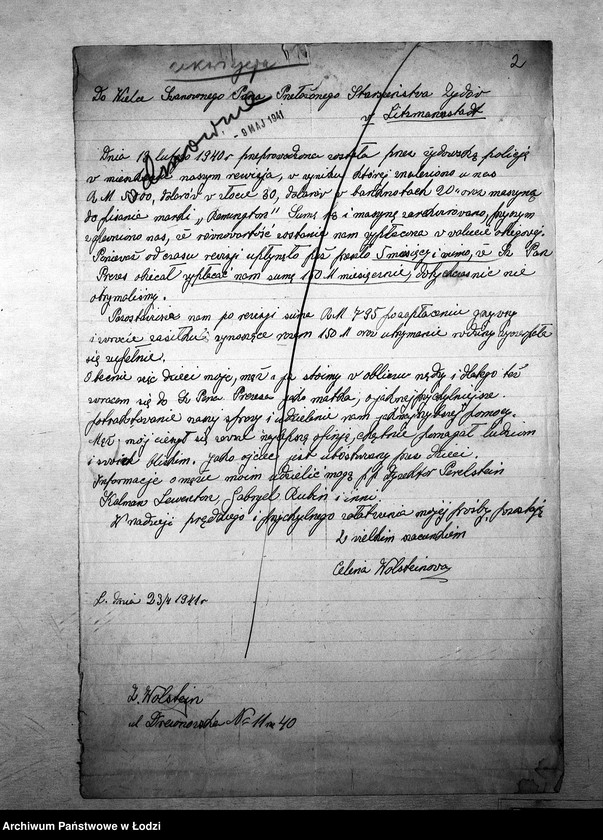 rekwizycja
2
Do Wielce Szanownego Pana Przełożonego Starszeństwa Żydów
w Litzmannstadt
odmownie
- 9 MAJ 1941
Dnia 19 lutego 1940 r przeprowadzona została przez żydowską policję
w mieszkaniu naszym rewizja, w wyniku której znaleziono u nas
R.M. 5000, dolarów w złocie 30, dolarów w banknotach 20 oraz maszynę
do pisania marki „Remington”. Sumę tę i maszynę zarekwirowano, przyczym
zapewniono nas, że równowartość zostanie nam wypłacona w walucie okręgowej.
Ponieważ od czasu rewizji upłynęło już prawie miesięcy i mimo, że Sz. Pan
Prezes obiecał wypłacać nam sumę 150 M miesięcznie, dotychczas nie
otrzymaliśmy.
Pozostawiona nam po rewizji suma R.M. 795 po zapłaceniu grzywny
i zwrocie zasiłku, wynoszące razem 150 M oraz utrzymanie rodziny wyczerpała
się zupełnie.
Obecnie więc dzieci moje, mąż i ja stoimy w obliczu nędzy i dlatego też
zwracam się do Sz. Pana Prezesa jako matka, o jaknajprzychylniejsze
potraktowanie naszej sprawy i udzielenie nam jaknajszybszej pomocy.
Mąż mój cieszył się zawsze najlepszą opinją, chętnie pomagał ludziom
i swoim bliskim. Jako ojciec jest ubóstwiany przez dzieci.
Informacje o mężu moim udzielić mogą p.p. Dyrektor Perelstein
Kalman Lewentor, Gabryel Rukin i inni.
W nadzieji prędkiego i przychylnego załatwienia mojej prośby, pozostaję
Z wielkim szacunkiem
Celina Wolsteinova
Ł. dnia 23/4 1941 r
Z. Wolstein
ul Drewnowska No 11 m 40
Archiwum Państwowe w Łodzi